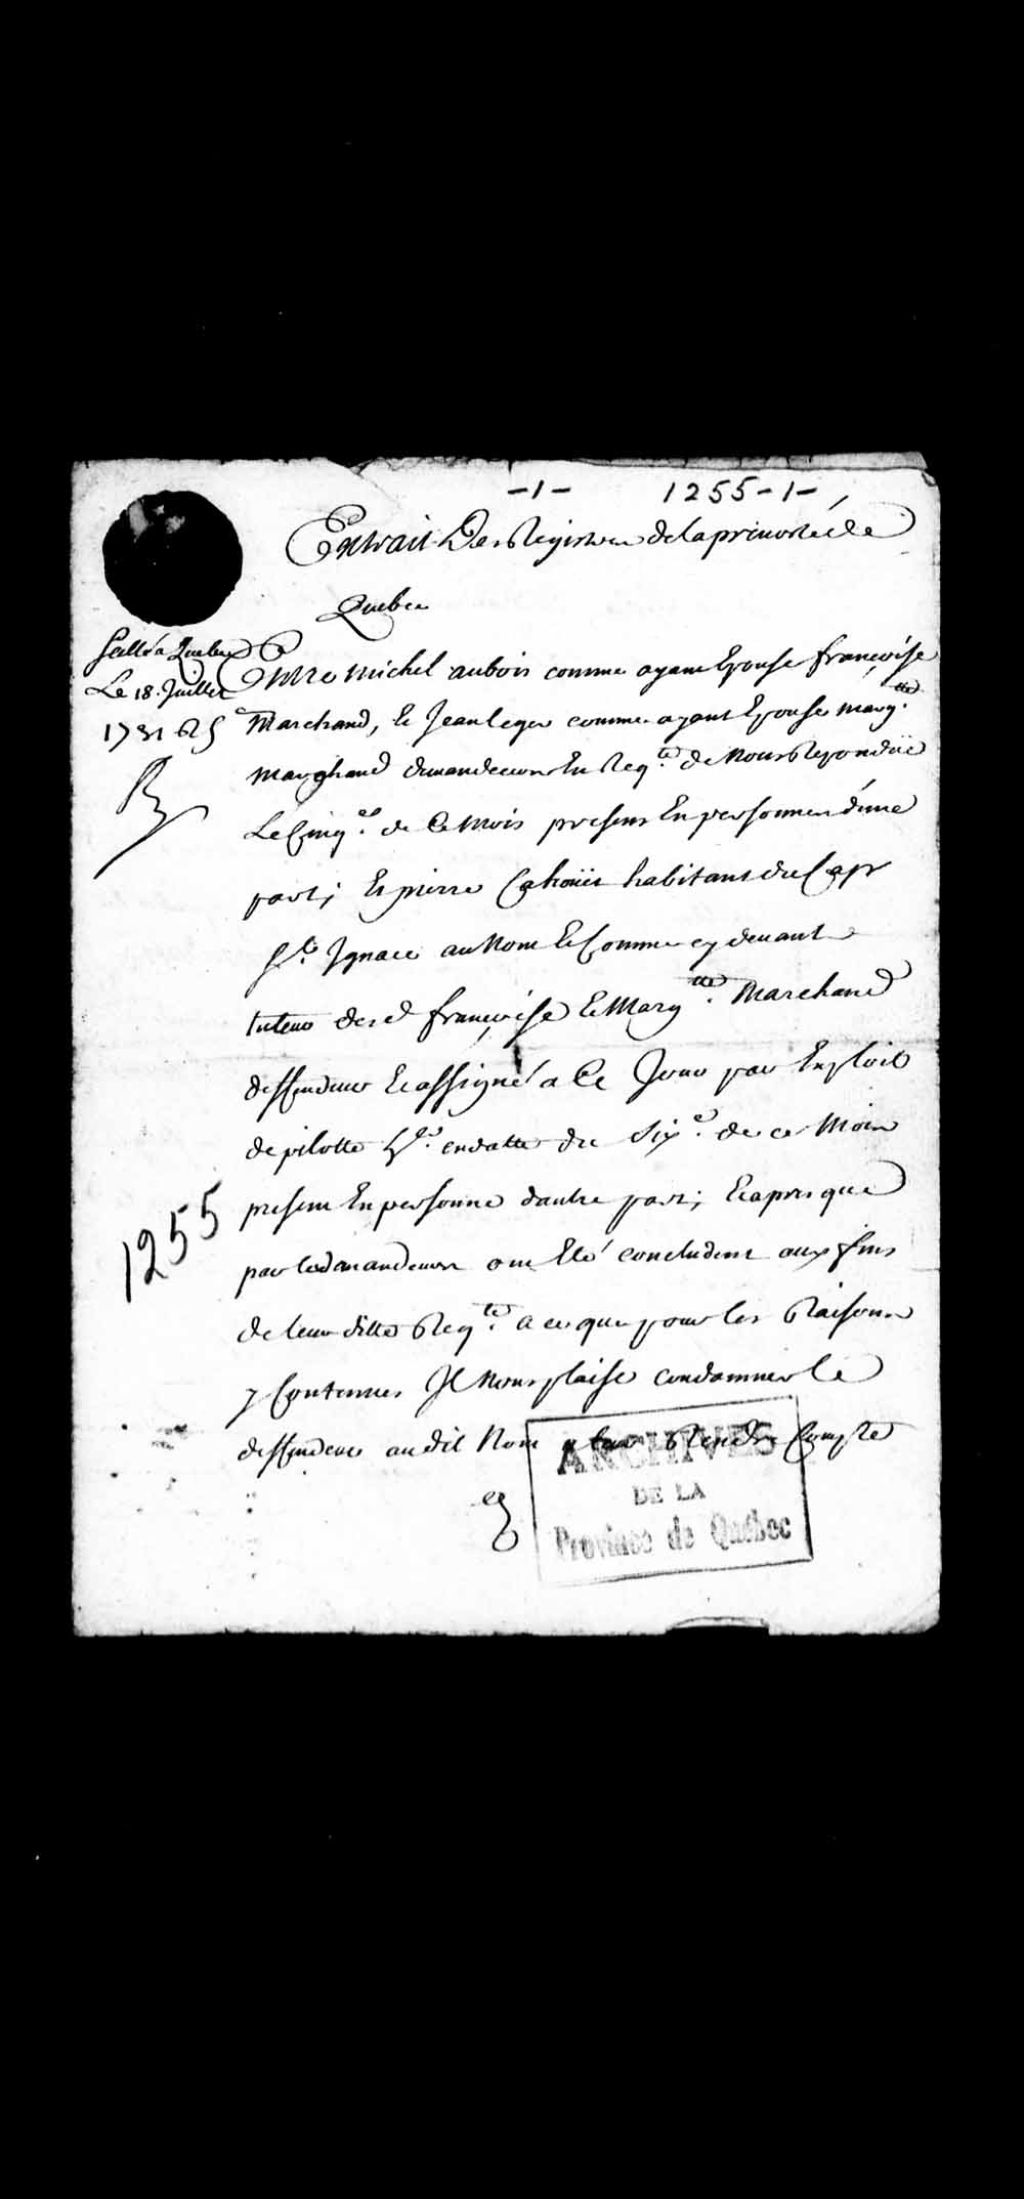 -1- 1255-1-
Extrait Des Registres de la prevosté de
Quebec
Scellé a Quebec
Le 18. Juillet
1731
Entre Michel aubois comme ayant Epousé françoise
Marchand, Et Jean leger comme ayant Epousé Marg.tte
Marchand demandeurs En Req.te de Nous Repondüe
Le Cinq.e de Ce Mois presens En personnes d'une
part; Et pierre Cahoüet habitant du Cap
S.t Ignace au Nom Et Comme cy devant
tuteur desd françoise Et Marg.tte Marchand
deffendeur Et assigné a Ce Jour par Exploit
de pilotte en datte du Six.e de ce Mois
present En personne d'autre part; Et apres que
par lesd demandeurs ont Eté concludent aux fins
de leur ditte Req.te a ce que pour les Raisons
y Contenues Il Nous plaise condamner le
deffendeur audit Nom a leur Rendre Compte
1255
ARCHIVES
DE LA
Province de Québec